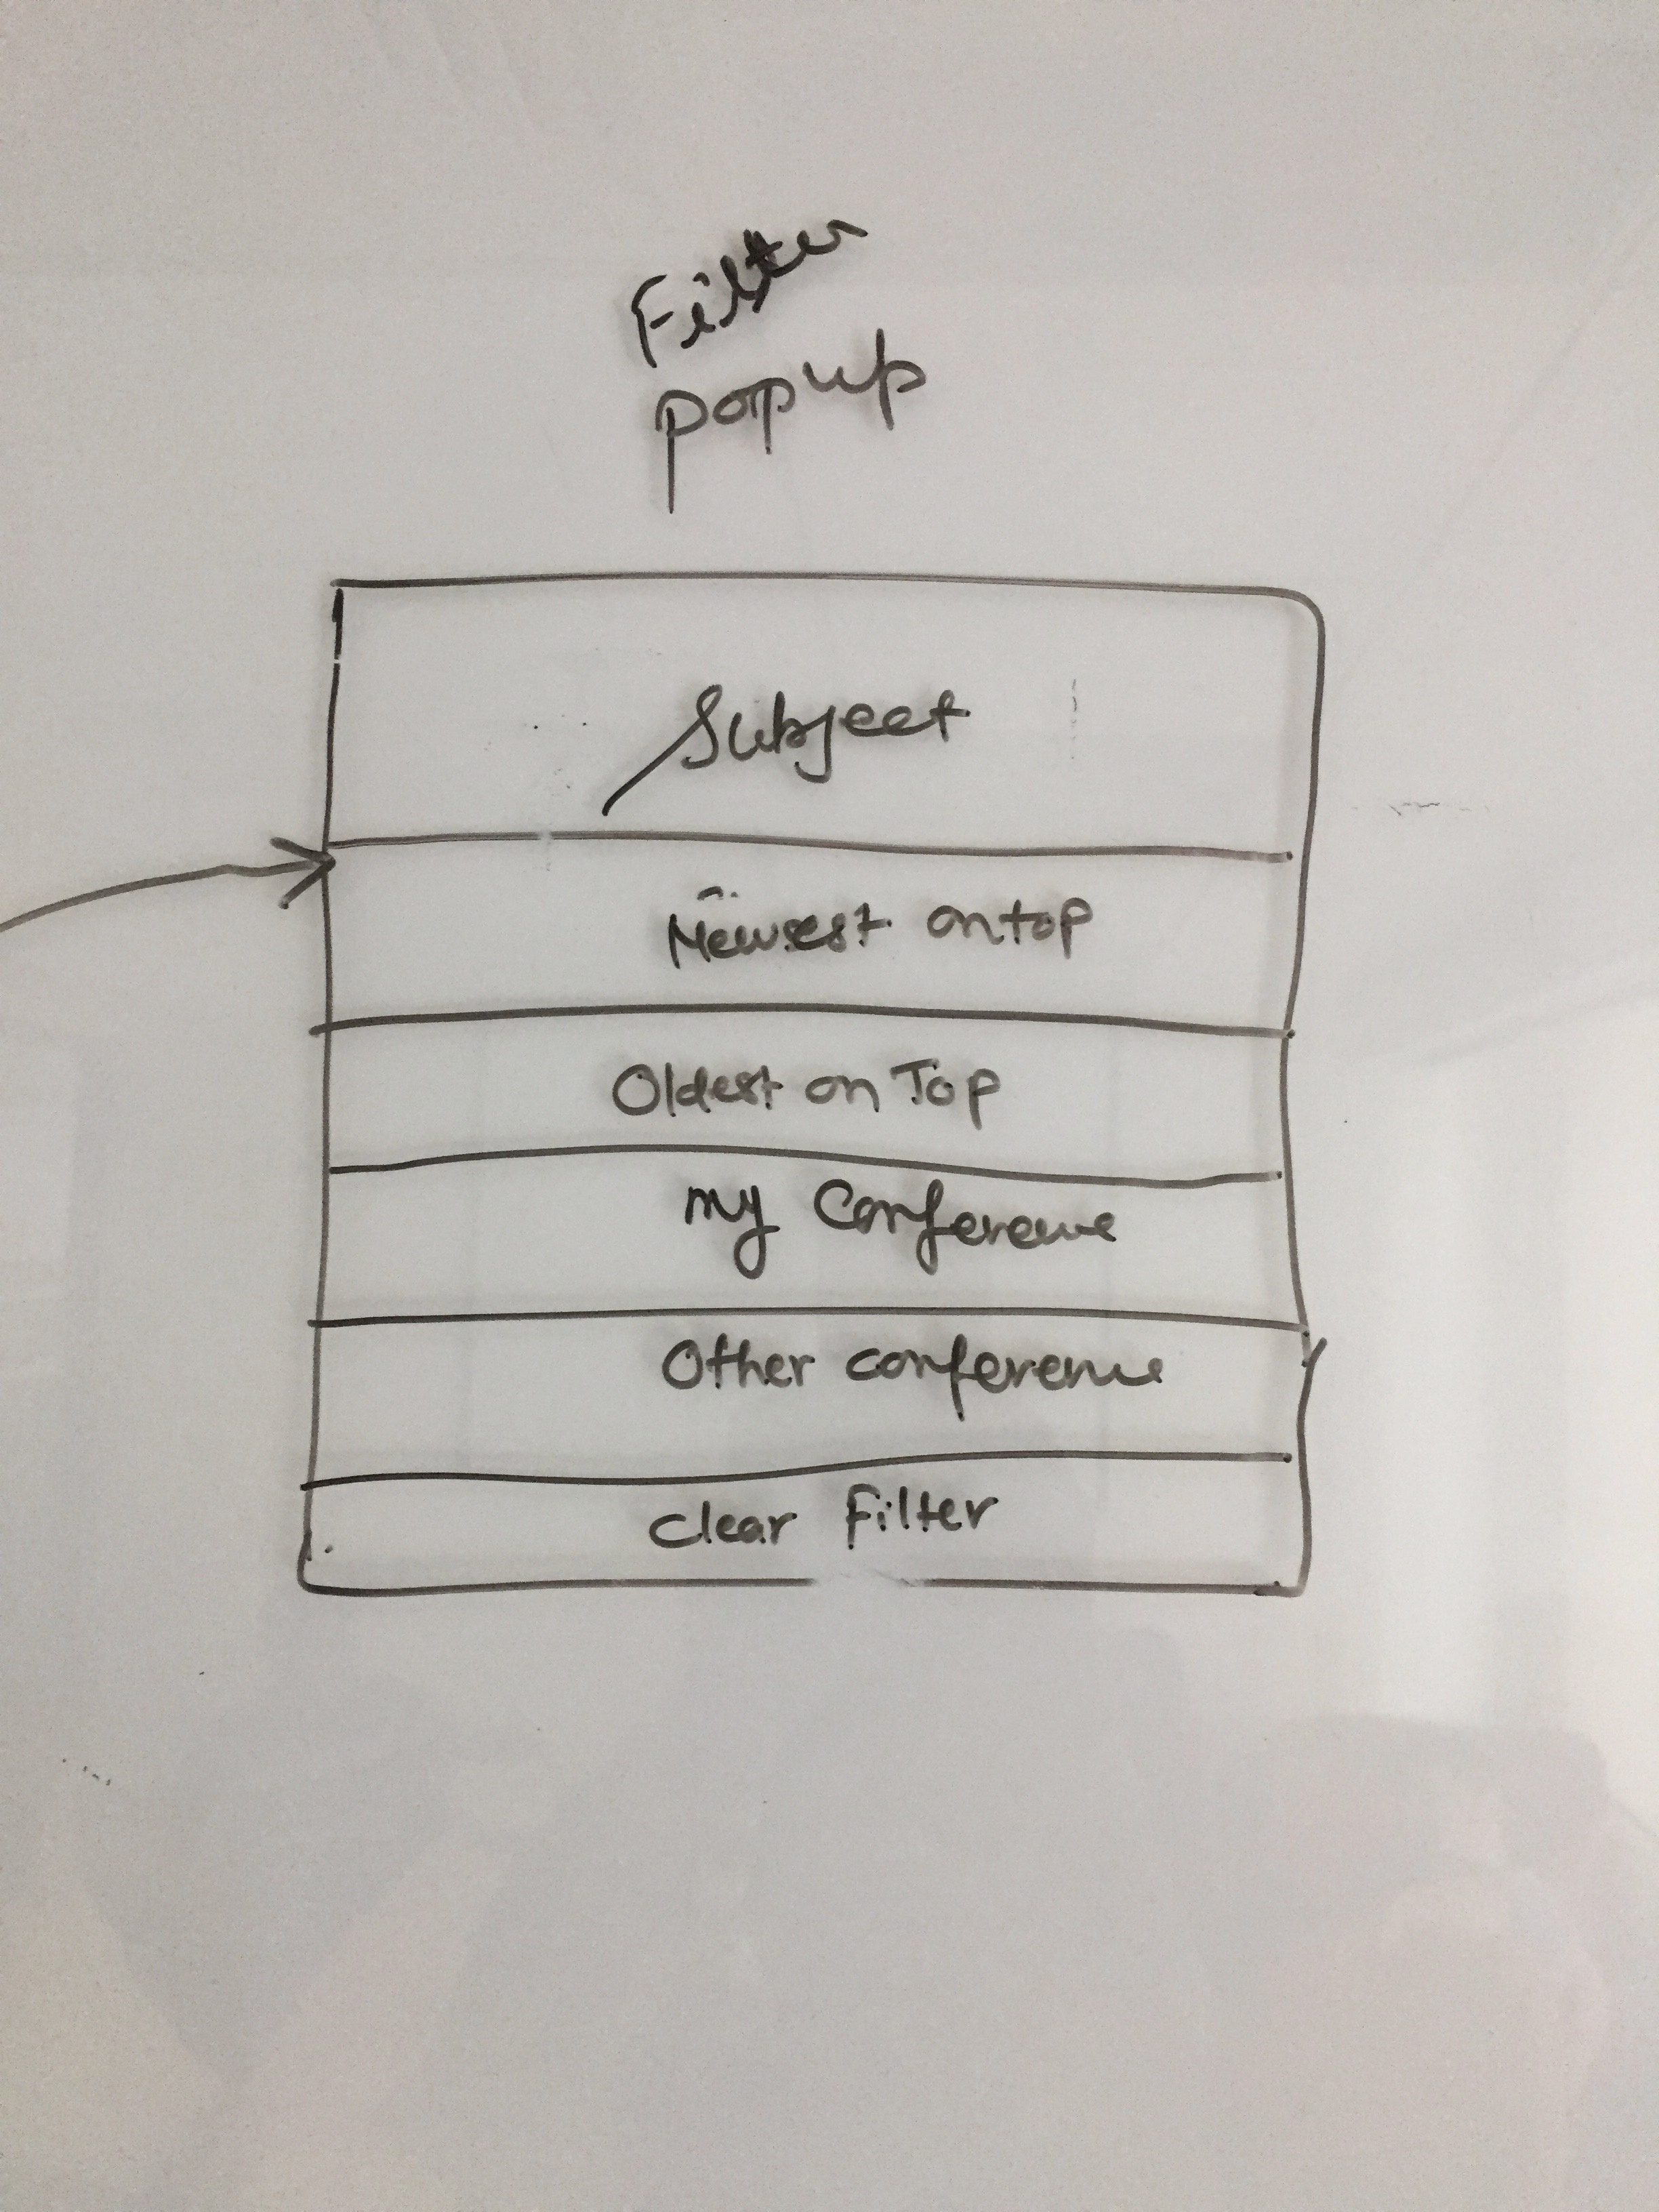 Filter
popup
Subject
Newest on top
Oldest on Top
my Conference
Other conference
Clear Filter